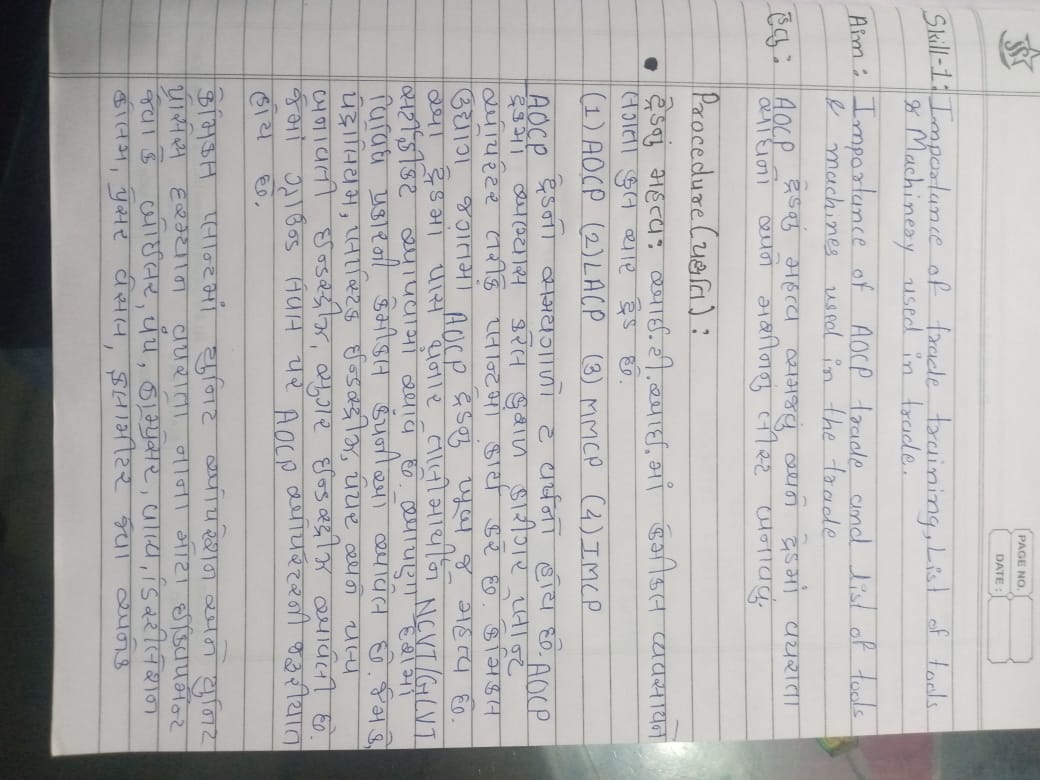 PAGE NO.
DATE:
Skill-1: Importance of trade training, List of tools
& Machinery used in trade.
Aim: Importance of AOCP trade and list of tools
& machines used in the trade
હેતુ: AOCP ટ્રેડનું મહત્વ સમજવું અને ટ્રેડમાં વપરાતા
સાધનો અને મશીનનું લીસ્ટ બનાવવું.
Procedure (પદ્ધતિ):
• ટ્રેડનું મહત્વ: આઈ.ટી.આઈ.માં કેમીકલ વ્યવસાયને
લગતા કુલ ચાર ટ્રેડ છે.
(1) AOCP (2) LACP (3) MMCP (4) IMCP
AOCP ટ્રેડનો સમયગાળો 2 વર્ષનો હોય છે. AOCP
ટ્રેડમાં અભ્યાસ કરેલ કુશળ કારીગર પ્લાન્ટ
ઓપરેટર તરીકે પ્લાન્ટમાં કાર્ય કરે છે. કેમિકલ
ઉદ્યોગ જગતમાં AOCP ટ્રેડનું ખુબ જ મહત્વ છે.
આ ટ્રેડમાં પાસ થનાર તાલીમાર્થીને NCVT/GCVT
સર્ટીફીકેટ આપવામાં આવે છે. આપણા દેશમાં
વિવિધ પ્રકારની કેમીકલ કંપનીઓ આવેલ છે. જેમકે,
પેટ્રોલિયમ, પ્લાસ્ટિક ઈન્ડસ્ટ્રીઝ, પેપર અને પલ્પ
બનાવતી ઈન્ડસ્ટ્રીઝ, સુગર ઈન્ડસ્ટ્રીઝ આવેલી છે.
જેમાં પ્રત્યેક પ્લાન્ટ પર AOCP ઓપરેટરની જરૂરીયાત
હોય છે.
કેમિકલ પ્લાન્ટમાં યુનિટ ઓપરેશન અને યુનિટ
પ્રોસેસ દરમ્યાન વપરાતા નાના મોટા ઈક્વિપમેન્ટ
જેવા કે બોઈલર, પંપ, કોમ્પ્રેસર, વાલ્વ, ડિસ્ટીલેશન
કોલમ, ફ્લોમીટર જેવા અનેક